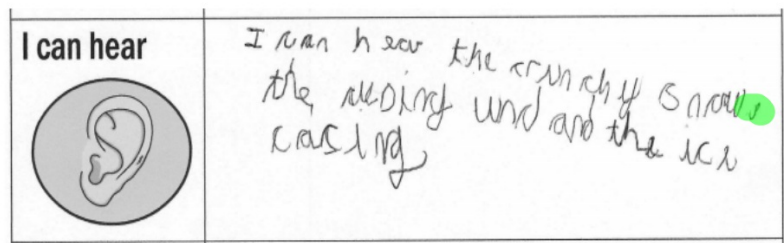 I can hear
I can hear the crunchy snow,
the und and the ice
cacing